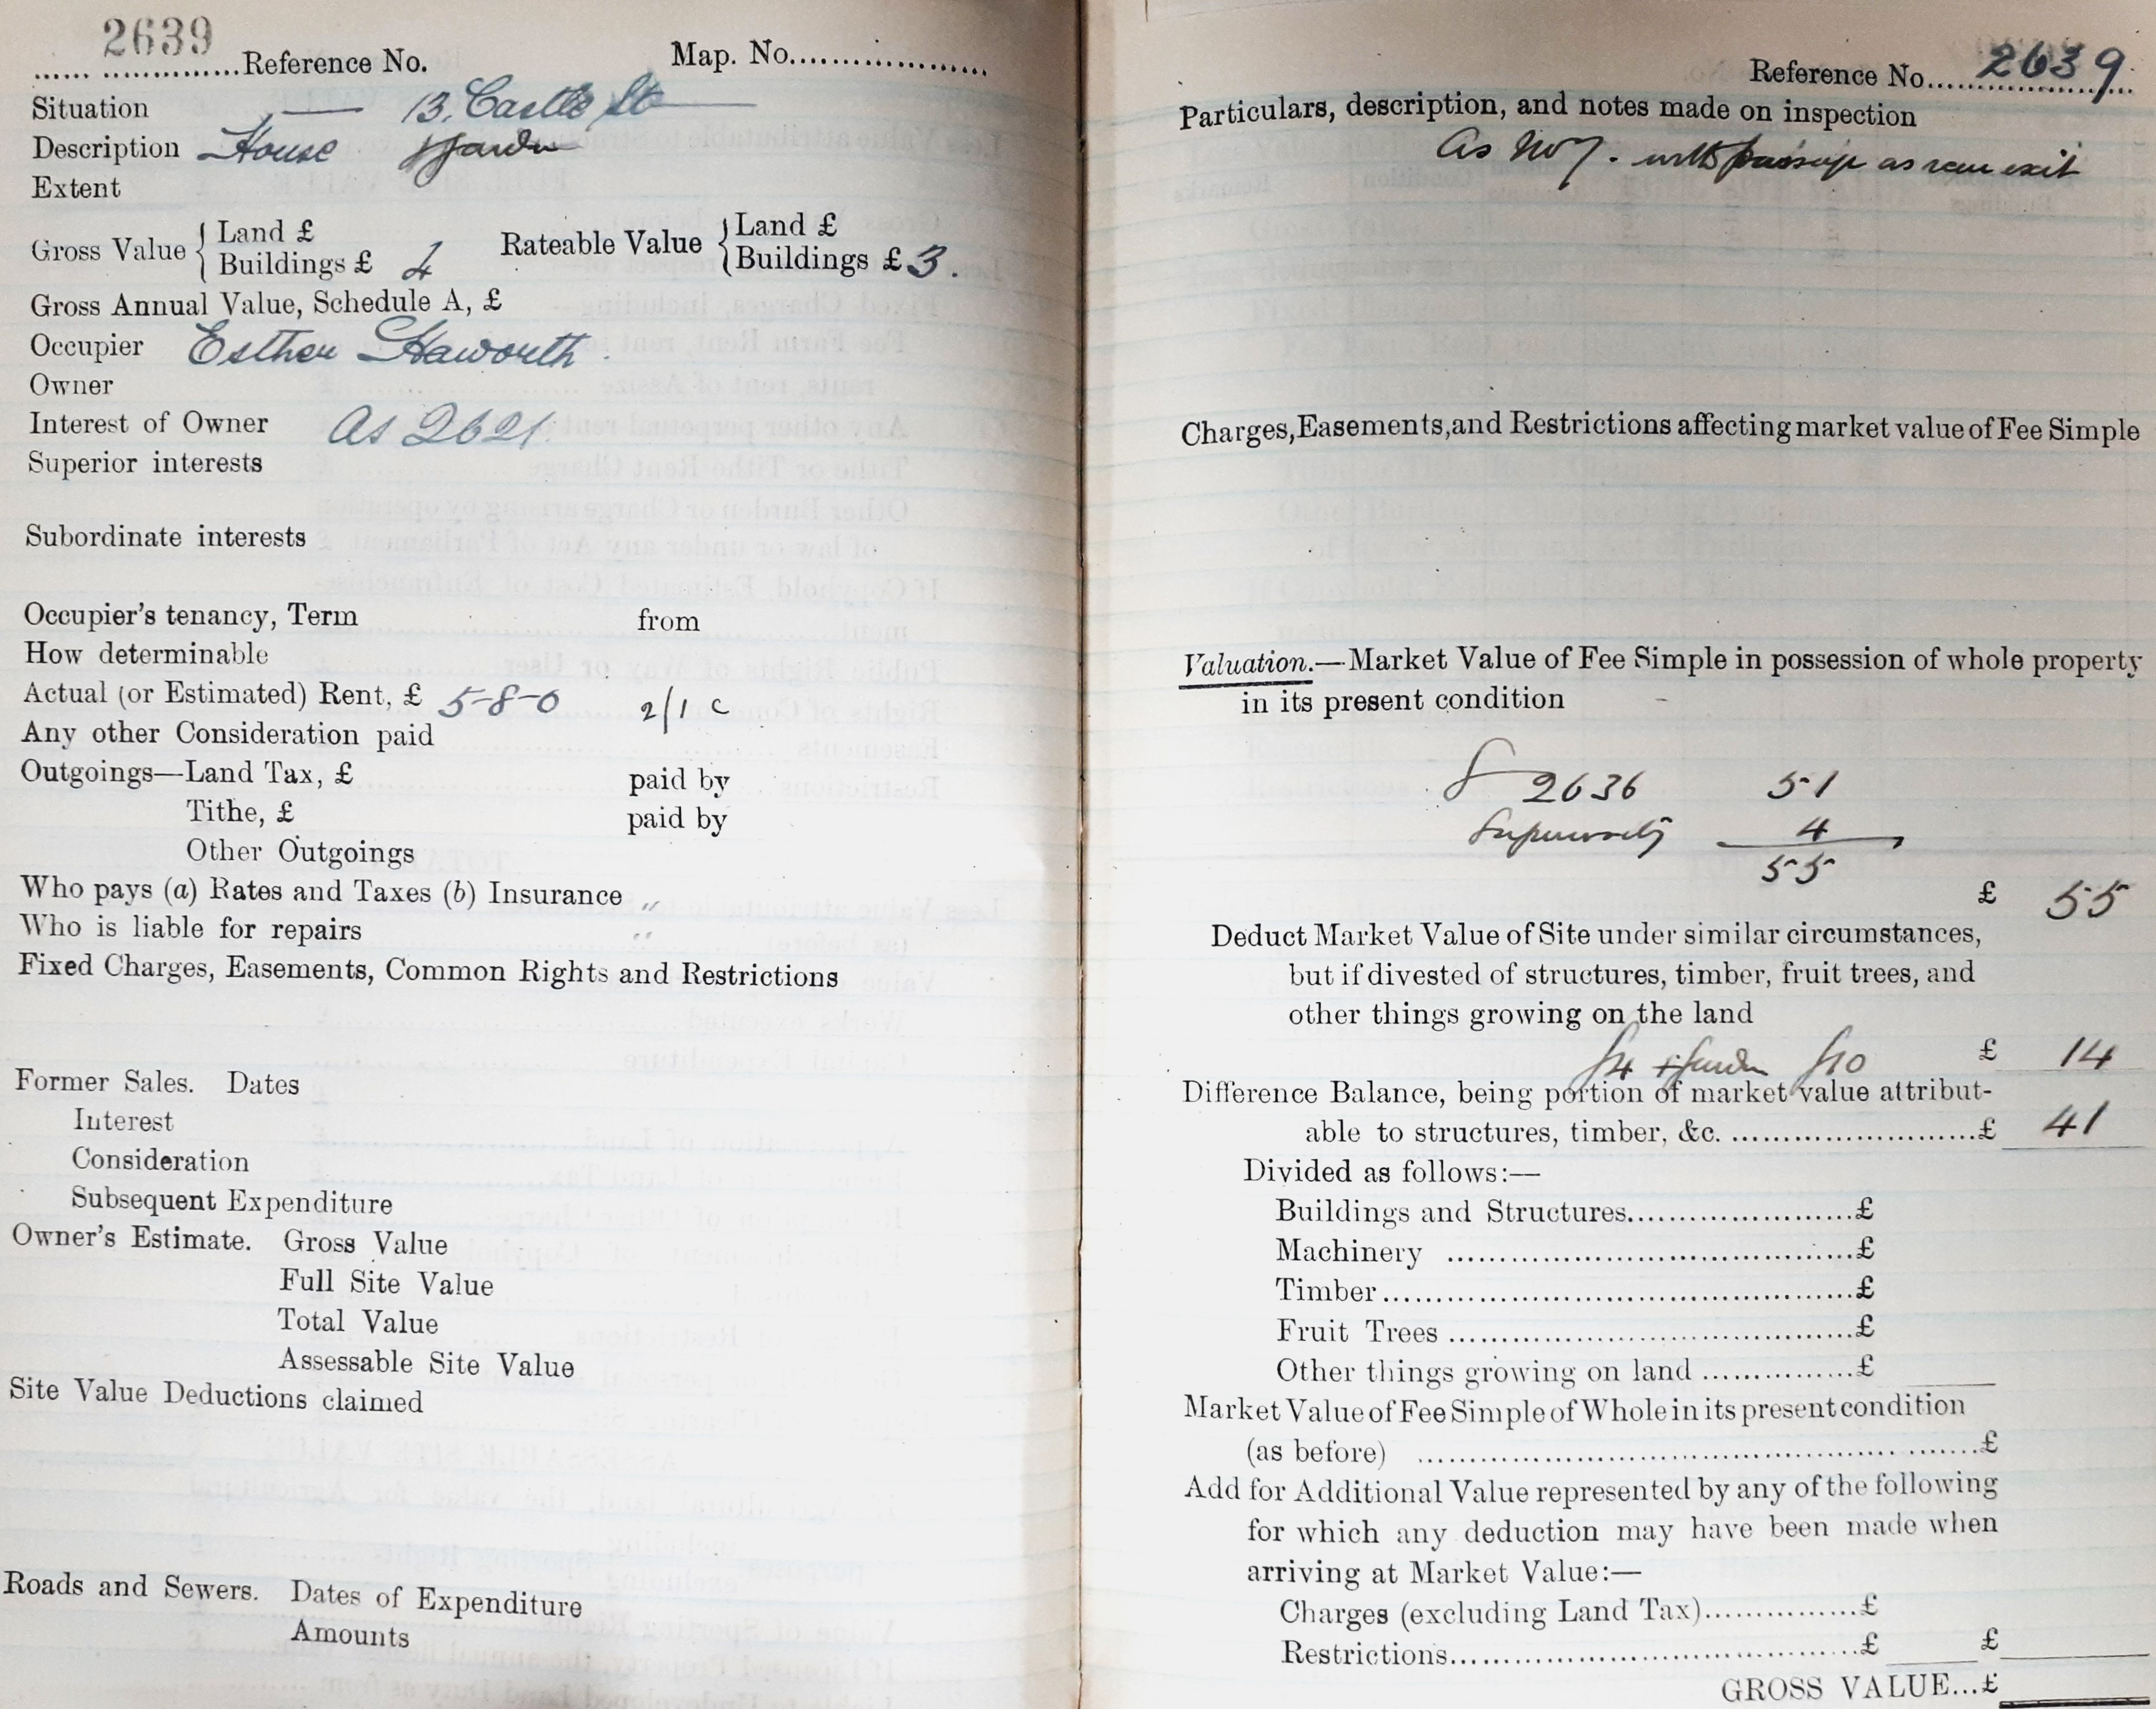 2639
Reference No. Map. No.
Situation 13, Castle St
Description House & Garden
Extent
Gross Value { Land £
Buildings £ 4
Rateable Value { Land £
Buildings £ 3.
Gross Annual Value, Schedule A, £
Occupier Esther Haworth
Owner
Interest of Owner As 2621
Superior interests
Subordinate interests
Occupier's tenancy, Term from
How determinable
Actual (or Estimated) Rent, £ 5-8-0 2/1 c
Any other Consideration paid
Outgoings—Land Tax, £ paid by
Tithe, £ paid by
Other Outgoings
Who pays (a) Rates and Taxes (b) Insurance "
Who is liable for repairs "
Fixed Charges, Easements, Common Rights and Restrictions
Former Sales. Dates
Interest
Consideration
Subsequent Expenditure
Owner's Estimate. Gross Value
Full Site Value
Total Value
Assessable Site Value
Site Value Deductions claimed
Roads and Sewers. Dates of Expenditure
Amounts
Reference No. 2639
Particulars, description, and notes made on inspection
As No 7. with passage as rear exit
Charges, Easements, and Restrictions affecting market value of Fee Simple
Valuation.—Market Value of Fee Simple in possession of whole property
in its present condition
2636 51
4
55
£ 55
Deduct Market Value of Site under similar circumstances,
but if divested of structures, timber, fruit trees, and
other things growing on the land
£4 + garden £10 £ 14
Difference Balance, being portion of market value attribut-
able to structures, timber, &c. £ 41
Divided as follows:—
Buildings and Structures £
Machinery £
Timber £
Fruit Trees £
Other things growing on land £
Market Value of Fee Simple of Whole in its present condition
(as before) £
Add for Additional Value represented by any of the following
for which any deduction may have been made when
arriving at Market Value:—
Charges (excluding Land Tax) £
Restrictions £ £
GROSS VALUE...£